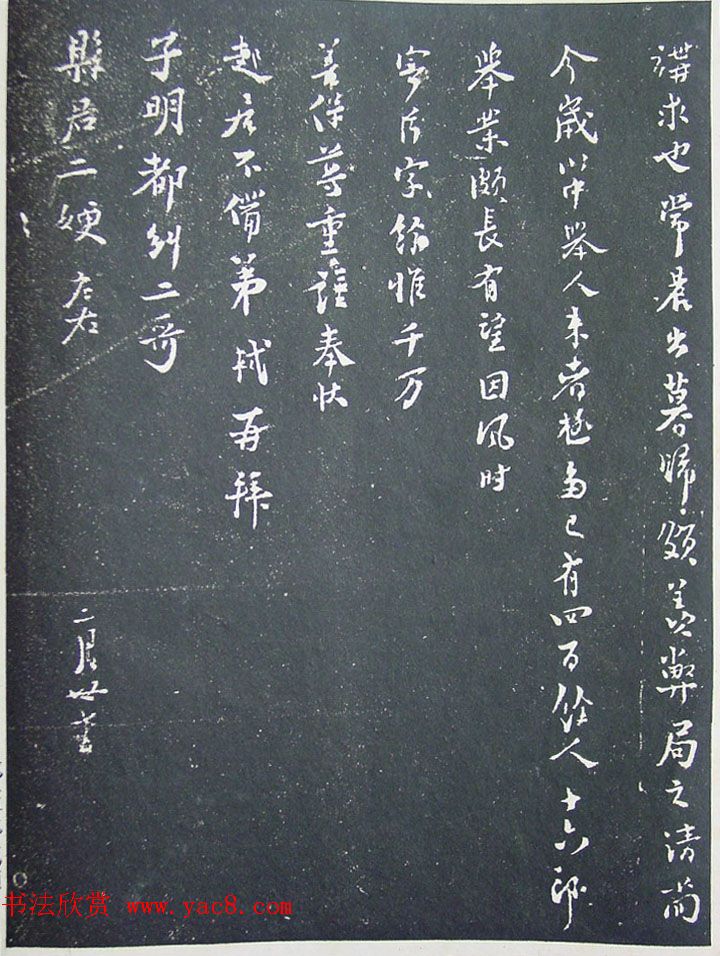 講求也常晨出暮歸頗羨弊局之清尚
今歲此中舉人来者極多已有四百餘人十六郎
舉業頗長有望因风时
寄字餘惟千万
善保尊重謹奉状
起居不備弟軾再拜
子明都糾二哥
縣君二嫂左右
二月廿書
书法欣赏 www.yac8.com